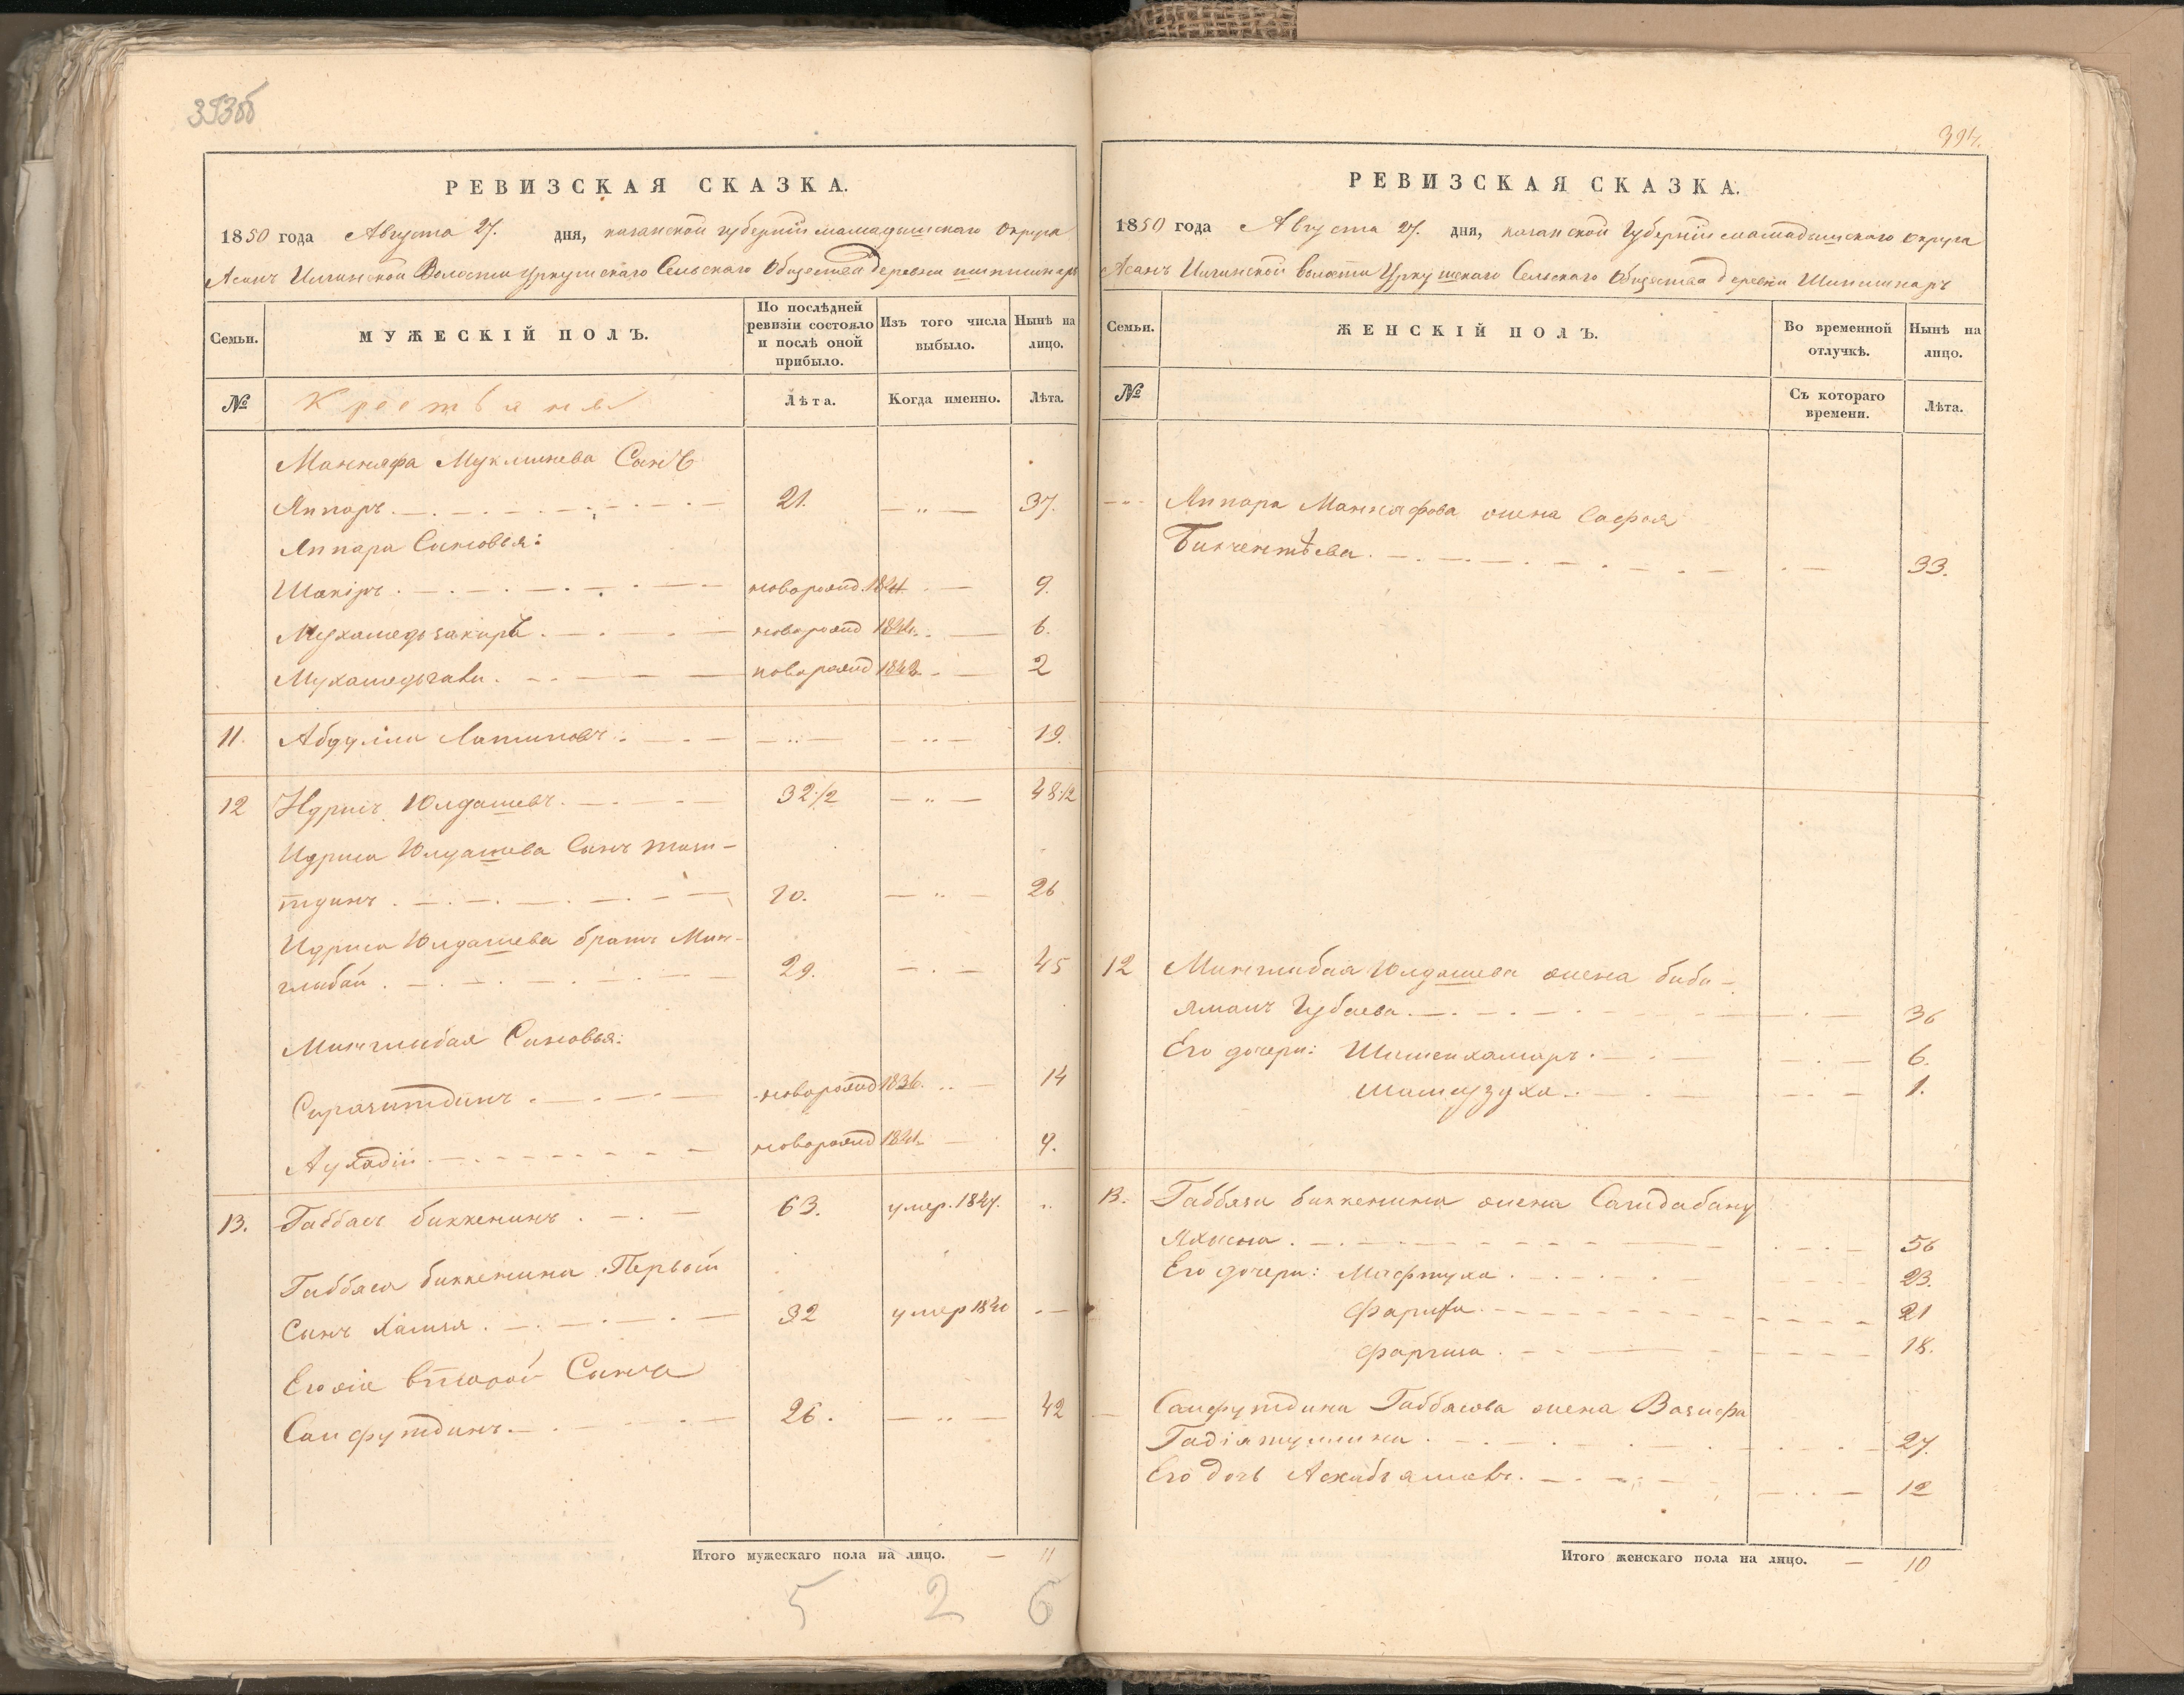 393об
РЕВИЗСКАЯ СКАЗКА.
1850 года Августа 27. дня, казанской губернiи мамадышскаго округа
Асанъ Илгинской Волости Уркушскаго Сельскаго Общества деревни шипшинаръ
Семьи. МУЖЕСКІЙ ПОЛЪ. По послѣдней ревизіи состояло и послѣ оной прибыло. Изъ того числа выбыло. Нынѣ на лицо.
№ Крестьяня Лѣта. Когда именно. Лѣта.
Маннафа Муклинева Сынъ
Яппаръ. 21. — " — 37.
Яппара Сыновья:
Шакiръ. новорожд. 1841. 9.
Мухамедьзакиръ. новорожд 1844. 6.
Мухамедьгали. новорожд 1848. 2
11. Абдулла Латиповъ. — " — — " — 19.
12 Идрисъ Юлдашевъ. 32 1/2 — " — 48 1/2
Идриса Юлдашева Сынъ
тдинъ. 10. — " — 26
Идриса Юлдашева братъ Мин-
глибай. 29. — " — 45
Минглибая Сыновья:
Сиразитдинъ. новорожд 1836. 14
Аухадiй. новорожд 1841. 9.
13. Габбасъ биккенинъ. 63. умер. 1847. "
Габбаса биккенина Первой
Сынъ Хамзя. 32 умер 1840 "
Егоже второй Сынъ
Сайфутдинъ. 26. — " — 42
Итого мужескаго пола на лицо. — 11
5 2 6
394.
РЕВИЗСКАЯ СКАЗКА.
1850 года Августа 27. дня, казанской Губернiи мамадышскаго округа
Асанъ Илгинской волости Уркушскаго Сельскаго Общества деревни Шипшинаръ
Семьи. ЖЕНСКІЙ ПОЛЪ. Во временной отлучкѣ. Нынѣ на лицо.
№ Съ котораго времени. Лѣта.
Яппара Маннафова жена Сафия
Бикчентѣева. 33.
12 Минглибая Юлдашева жена биби-
ямалъ Губаева. 36
Его дочери: Шамсикамаръ. 6.
1.
13. Габбаса биккенина жена Саитдабану
Яхина. 56
Его дочери: Мафтуха. 23.
Фарифа. 21
18.
Сайфутдина Габбасова жена Вазифа
Гадiятуллина. 27.
Его дочь Асхабъямалъ. 12
Итого женскаго пола на лицо. — 10